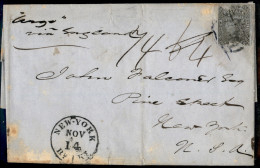 "Argo"
via England
John Falconer Esq
Pine Street
New York
U.S.A
NEW-YORK
NOV
14